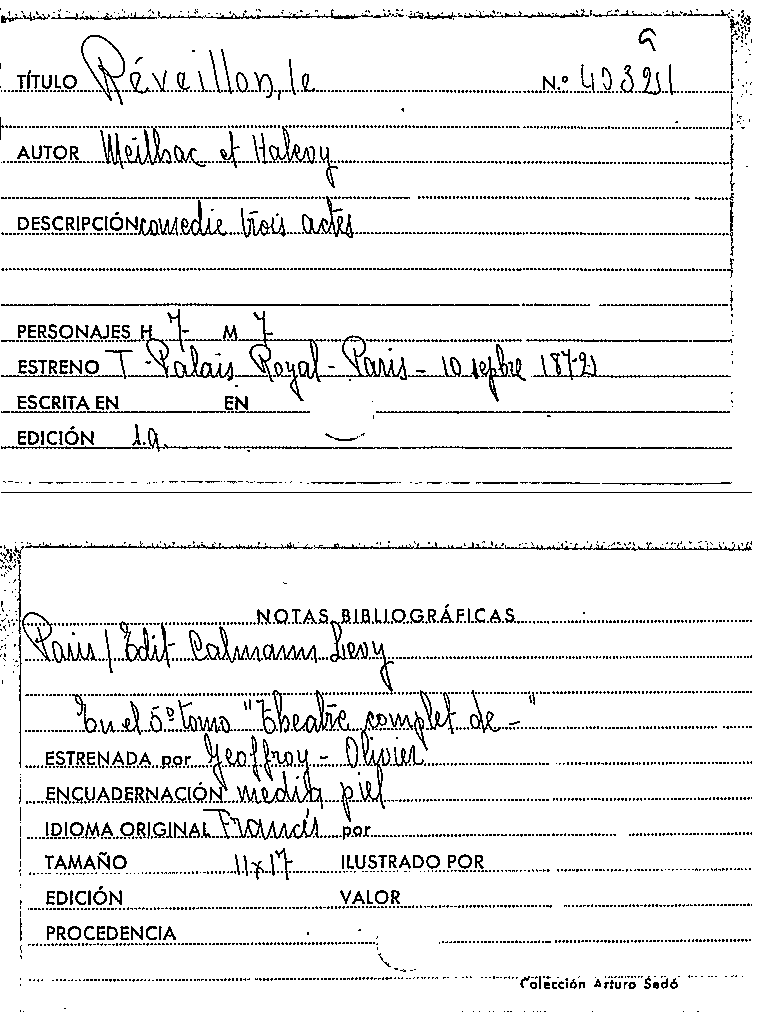 G
TÍTULO Réveillon, le N.º 40321
AUTOR Meilhac et Halevy
DESCRIPCIÓN comedie trois actes
PERSONAJES H 7 M 7
ESTRENO T. Palais Royal - Paris - 10 sepbre 1872
ESCRITA EN EN
EDICIÓN 1.a
NOTAS BIBLIOGRÁFICAS
Paris / Edit Calmann Levy
En el 5º tomo "Theatre complet de -"
ESTRENADA por Geoffroy - Olivier
ENCUADERNACIÓN media piel
IDIOMA ORIGINAL Francés por
TAMAÑO 11x17 ILUSTRADO POR
EDICIÓN VALOR
PROCEDENCIA
Colección Arturo Sedó